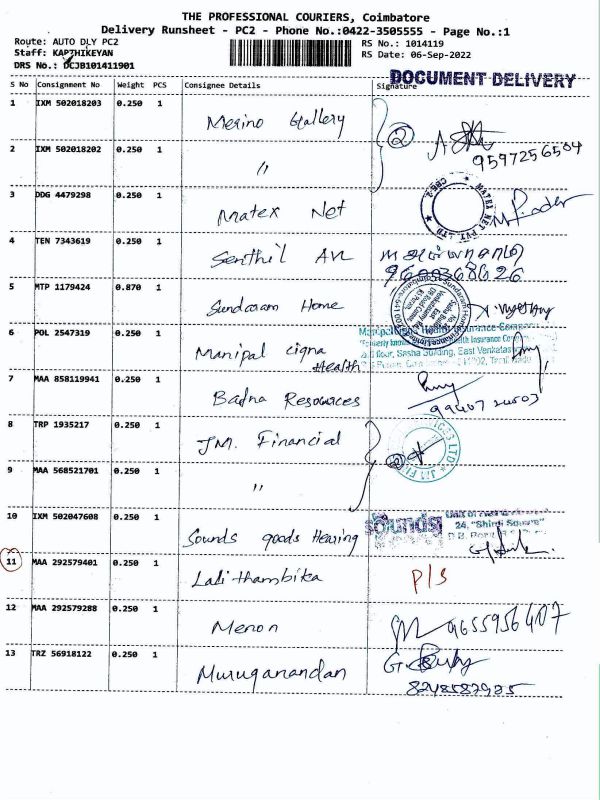 THE PROFESSIONAL COURIERS, Coimbatore
Delivery Runsheet - PC2 - Phone No.:0422-3505555 - Page No.:1
Route: AUTO DLY PC2
Staff: KARTHIKEYAN
DRS No.: DCJB101411901
RS No.: 1014119
RS Date: 06-Sep-2022
DOCUMENT DELIVERY
S No Consignment No Weight PCS Consignee Details Signature
1 IXM 502018203 0.250 1 Merino Gallery
2 IXM 502018202 0.250 1 〃 ② 9597256504
3 DDG 4479298 0.250 1 Matex Net
MATEX NET PVT LTD
CBE-2
4 TEN 7343619 0.250 1 Senthil AN
9600368626
5 MTP 1179424 0.870 1 Sundaram Home
6 POL 2547319 0.250 1 Manipal cigna Health
Manipal Health Insurance Company
7 MAA 858119941 0.250 1 Badna Resources
8 TRP 1935217 0.250 1 JM. Financial
9 MAA 568521701 0.250 1 〃 ②
10 IXM 502047608 0.250 1 Sounds goods Hearing
Sounds
24, "Shirdi Square"
11 MAA 292579401 0.250 1 Lalithambika P/S
12 MAA 292579288 0.250 1 Menon 9655956407
13 TRZ 56918122 0.250 1 Muruganandan